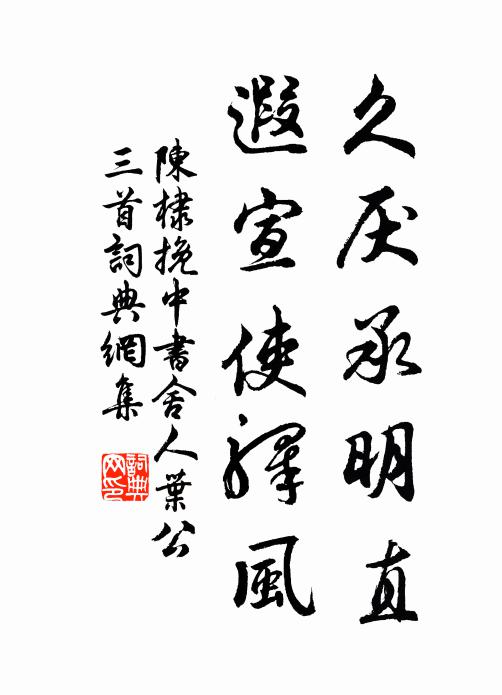 久厌承明直
遐宣使驿風
陳棣挽中書舍人葉公
三首詞典網集
詞典
网印